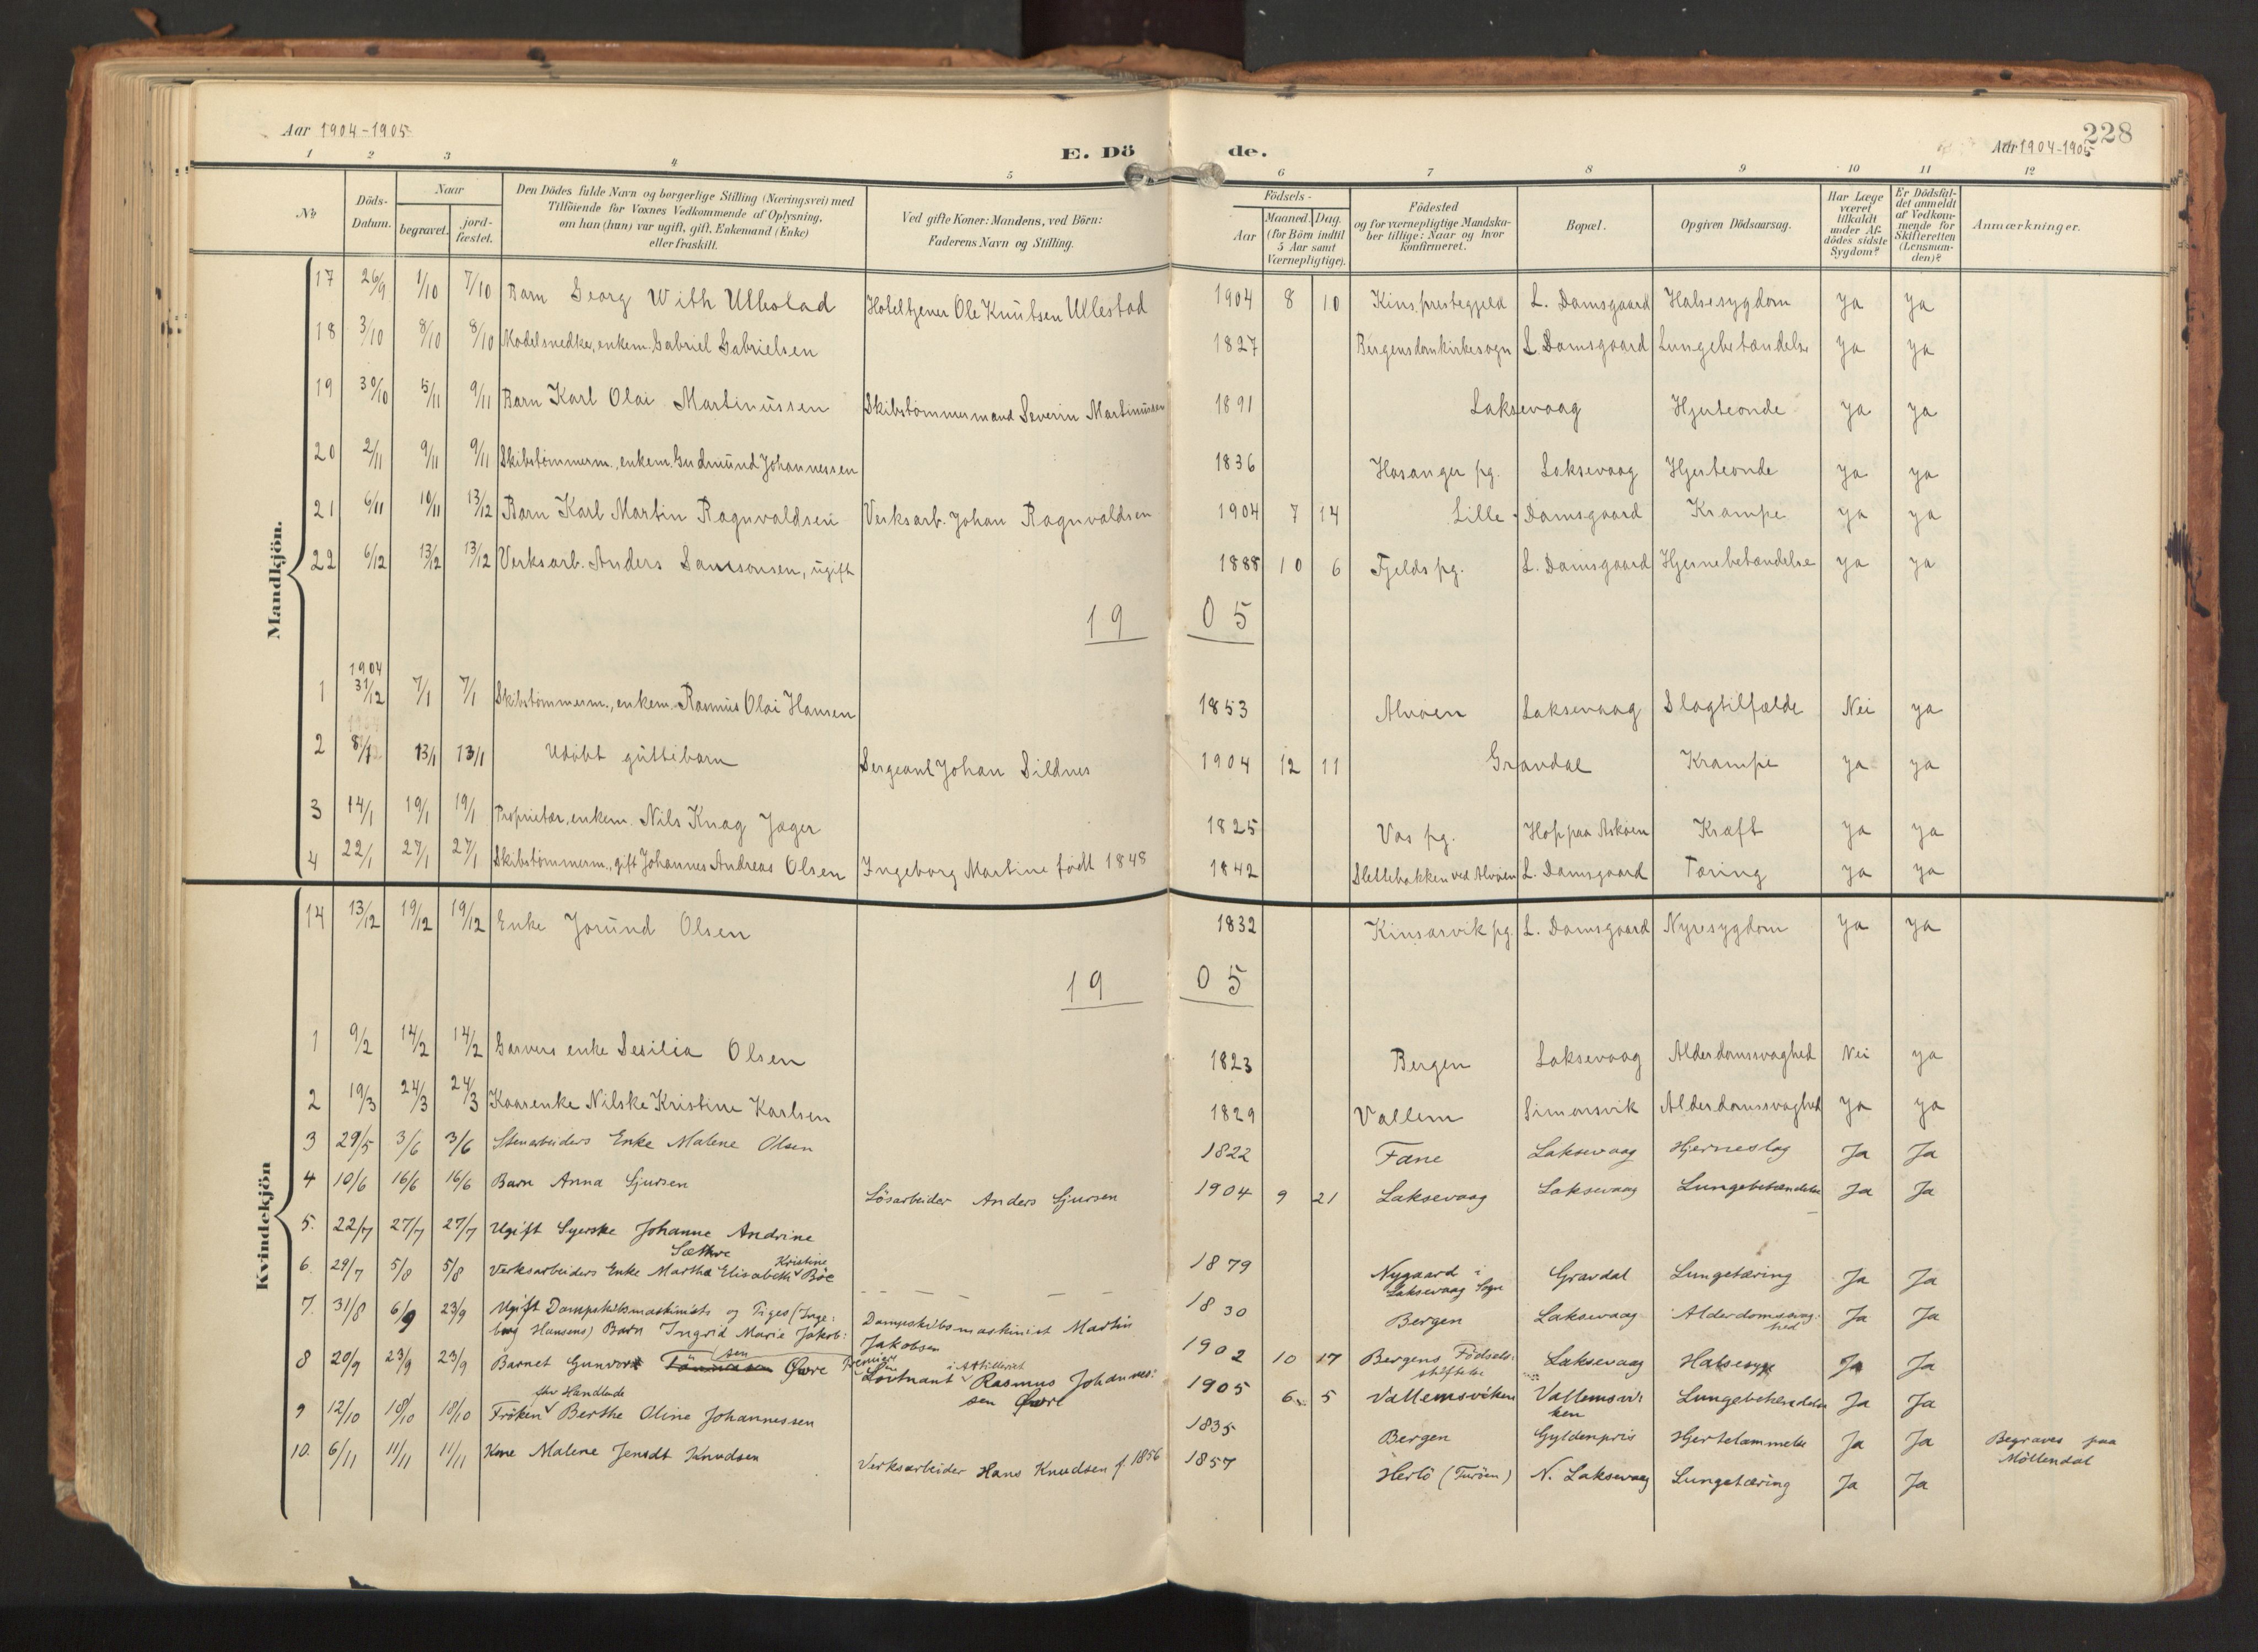 228
Aar 1904-1905
E. Dö de.
Aar 1904-1905
1 2 3 4 5 6 7 8 9 10 11 12
№
Döds-Datum.
Naar
begravet.
jord-fæstet.
Den Dödes fulde Navn og borgerlige Stilling (Næringsvei) med
Tilföiende for Voxnes Vedkommende af Oplysning,
om han (hun) var ugift, gift, Enkemand (Enke)
eller fraskilt.
Ved gifte Koner: Mandens, ved Börn:
Faderens Navn og Stilling.
Födsels-
Aar
Maaned. Dag.
(for Börn indtil
5 Aar samt
Værnepligtige).
Födested
og for værnepligtige Mandska-
ber tillige: Naar og hvor
konfirmeret.
Bopæl.
Opgiven Dödsaarsag.
Har Læge
været
tilkaldt
under Af-
dödes sidste
Sygdom?
Er Dödsfal-
det anmeldt
af Vedkom-
mende for
Skifteretten
(Lensman-
den)?
Anmærkninger.
Mandkjön.
17 26/9 1/10 7/10 Barn Georg With Ullestad Hoteltjener Ole Knutsen Ullestad 1904 8 10 Kins. prestegjeld L. Damsgaard Halsesygdom ja ja
18 3/10 8/10 8/10 Modelsnedker, enkem. Gabriel Gabrielsen 1827 Bergens domkirkesogn L. Damsgaard Lungebetændelse ja ja
19 30/10 5/11 9/11 Barn Karl Olai Martinussen Skibstömmermand Severin Martinussen 1891 Laksevaag Hjerteonde ja ja
20 2/11 9/11 9/11 Skibstömmerm., enkem. Gudmund Johannessen 1836 Hosanger pg. Laksevaag Hjerteonde ja ja
21 6/11 10/11 13/12 Barn Karl Martin Ragnvaldsen Verksarb. Johan Ragnvaldsen 1904 7 14 Lille-Damsgaard Krampe ja ja
22 6/12 13/12 13/12 Verksarb. Anders Samsonsen, ugift 1888 10 6 Fjelds pg. L. Damsgaard Hjernebetændelse ja ja
19 05
1904
1 31/12 7/1 7/1 Skibstömmerm., enkem. Rasmus Olai Hansen 1853 Alvöen Laksevaag Slagtilfælde Nei ja
2 8/1 13/1 13/1 Udöbt guttebarn Sergeant Johan Sildnes 1904 12 11 Gravdal Krampe ja ja
3 14/1 19/1 19/1 Proprietær, enkem. Nils Knag Jæger 1825 Vos pg. Hop paa Asköen Kræft ja ja
4 22/1 27/1 27/1 Skibstömmerm., gift Johannes Andreas Olsen Ingeborg Martine födt 1848 1842 Slettebakken ved Alvöen L. Damsgaard Tæring ja ja
Kvindekjön
14 13/12 19/12 19/12 Enke Jorund Olsen 1832 Kinsarvik pg. L. Damsgaard Nyresygdom ja ja
19 05
1 9/2 14/2 14/2 Garvers enke Sesilia Olsen 1823 Bergen Laksevaag Alderdomssvaghed Nei ja
2 19/3 24/3 24/3 Kaarenke Nilske Kristine Karlsen 1829 Vallem Simonsvik Alderdomssvaghed ja ja
3 29/5 3/6 3/6 Stenarbeiders Enke Malene Olsen 1822 Fane Laksevaag Hjerneslag Ja Ja
4 10/6 16/6 16/6 Barn Anna Gjursen Lösarbeider Anders Gjursen 1904 9 21 Laksevaag Laksevaag Lungebetændelse Ja Ja
5. 22/7 27/7 27/7 Ugift Syerske Johanne Andrine
Sæthre 1879 Nygaard i Laksevaag Sogn Gravdal Lungetæring Ja Ja
6. 29/7 5/8 5/8 Verksarbeiders Enke Martha Elisabeth Kristine Böe 1830 Bergen Laksevaag Alderdomssvaghed Ja Ja
7. 31/8 6/9 23/9 Ugift Dampskibsmaskinists og Piges (Inge-
borg Hansens) Barn Ingrid Marie Jakob-
sen Dampskibsmaskinist Martin
Jakobsen 1902 10 17 Bergens Födsels-
stiftelse Laksevaag Halsesyge Ja Ja
8 20/9 23/9 23/9 Barnet Gunvor Övre Premier Löitnant i Artilleriet Rasmus Johannes-
sen Övre 1905 6 5 Vallemsviken Vallemsvi-
ken Lungebetændelse Ja Ja
9 12/10 18/10 18/10 Fröken Handlende Berthe Oline Johannessen 1835 Bergen Gyldenpris Hjertelammelse Ja Ja Begraves paa
Möllendal
10. 6/11 11/11 11/11 Kone Malene Jensdt Knudsen Verksarbeider Hans Knudsen f. 1856 1857 Herlö (Turöen) N. Laksevaag Lungetæring Ja Ja